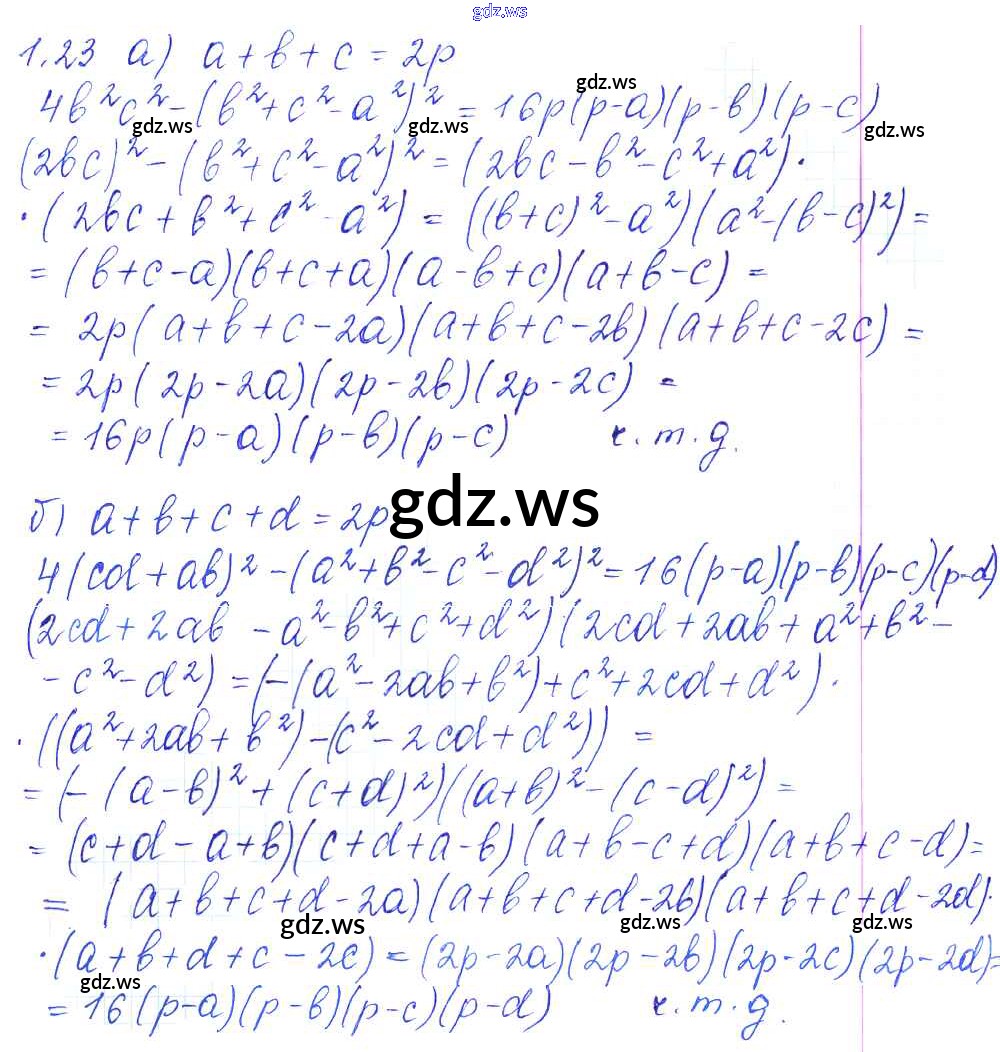 gdz.ws
1.23 а) a + b + c = 2p
gdz.ws
4b²c² - (b² + c² - a²)² = 16p(p-a)(p-b)(p-c)
gdz.ws gdz.ws gdz.ws
(2bc)² - (b² + c² - a²)² = (2bc - b² - c² + a²)·
·(2bc + b² + c² - a²) = ((b+c)² - a²)(a² - (b-c)²) =
= (b+c-a)(b+c+a)(a-b+c)(a+b-c) =
= 2p(a+b+c-2a)(a+b+c-2b)(a+b+c-2c) =
= 2p(2p-2a)(2p-2b)(2p-2c) =
= 16p(p-a)(p-b)(p-c) ч.т.д.
б) a + b + c + d = 2p
gdz.ws
4(cd+ab)² - (a²+b²-c²-d²)² = 16(p-a)(p-b)(p-c)(p-d)
(2cd+2ab - a²-b²+c²+d²)(2cd+2ab+a²+b²-
-c²-d²) = (-(a²-2ab+b²)+c²+2cd+d²)·
·((a²+2ab+b²)-(c²-2cd+d²)) =
= (-(a-b)²+(c+d)²)((a+b)²-(c-d)²) =
= (c+d-a+b)(c+d+a-b)(a+b-c+d)(a+b+c-d)=
= (a+b+c+d-2a)(a+b+c+d-2b)(a+b+c+d-2d)·
gdz.ws gdz.ws gdz.ws
·(a+b+d+c-2c) = (2p-2a)(2p-2b)(2p-2c)(2p-2d)=
gdz.ws
= 16(p-a)(p-b)(p-c)(p-d) ч.т.д.